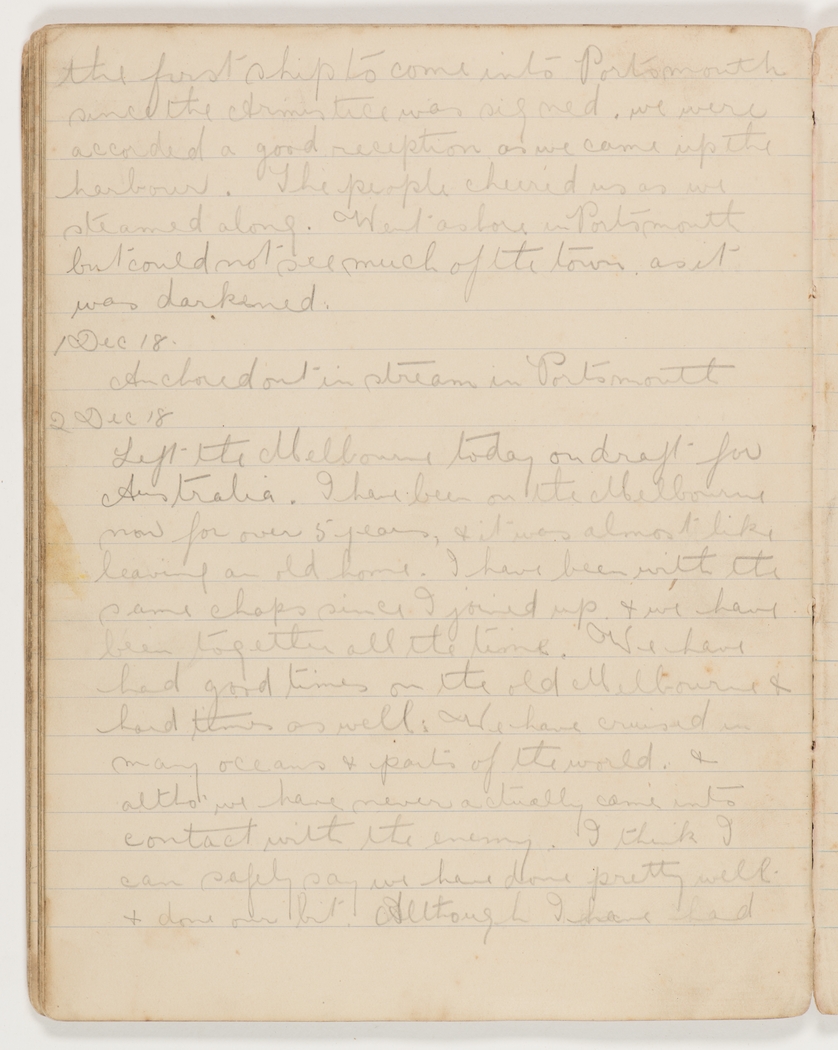 the first ship to come into Portsmouth
since the Armistice was signed. we were
accorded a good reception as we came up the
harbour. The people cheered us as we
steamed along. Went ashore in Portsmouth
but could not see much of the town, as it
was darkened.
1 Dec 18.
Anchored out in stream in Portsmouth
2 Dec 18
Left the Melbourne today on draft for
Australia. I have been on the Melbourne
now for over 5 years, & it was almost like
leaving an old home. I have been with the
same chaps since I joined up & we have
been together all the time. We have
had good times on the old Melbourne &
hard times as well; We have cruised in
many oceans & parts of the world. &
altho' we have never actually came into
contact with the enemy. I think I
can safely say we have done pretty well
& done our bit. Although I have had